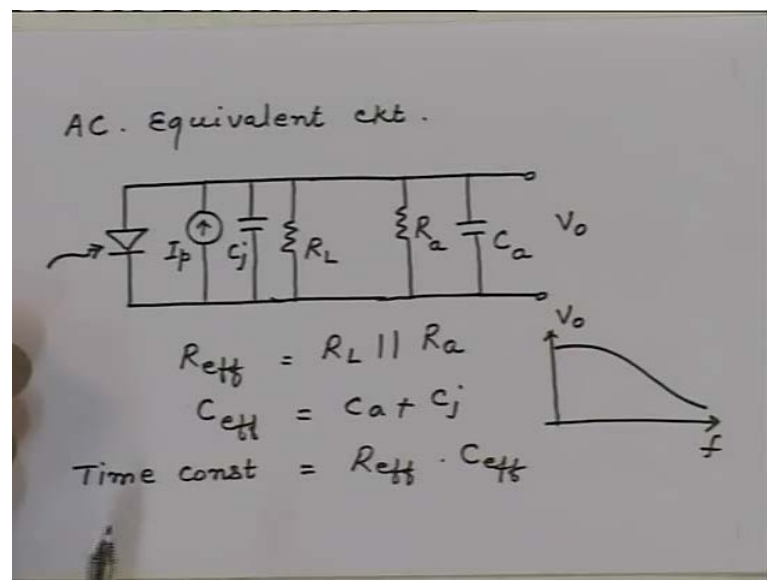 AC. Equivalent ckt.
Ip Cj RL Ra Ca Vo
Reff = RL || Ra
Vo
Ceff = Ca + Cj
f
Time const = Reff . Ceff